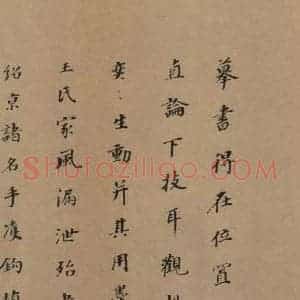 摹書得在位置
直論下技耳觀
奕〻生動并其用
王氏家風漏泄殆
紹京諸名手淩鈎
Shufaziliao.COM